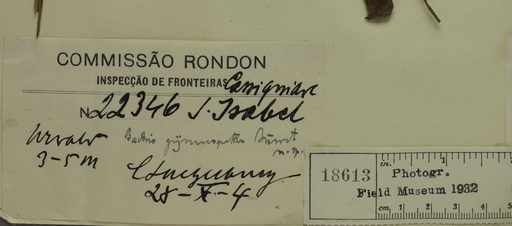 COMMISSÃO RONDON
INSPECÇÃO DE FRONTEIRAS Cassiquiare
No 22346 S. Isabel
Bactris gymnopatha Burret
3-5 m n. sp.
28-X-4
in. 1
18613 Photogr.
Field Museum 1932
cm. 1 2 3 4 5